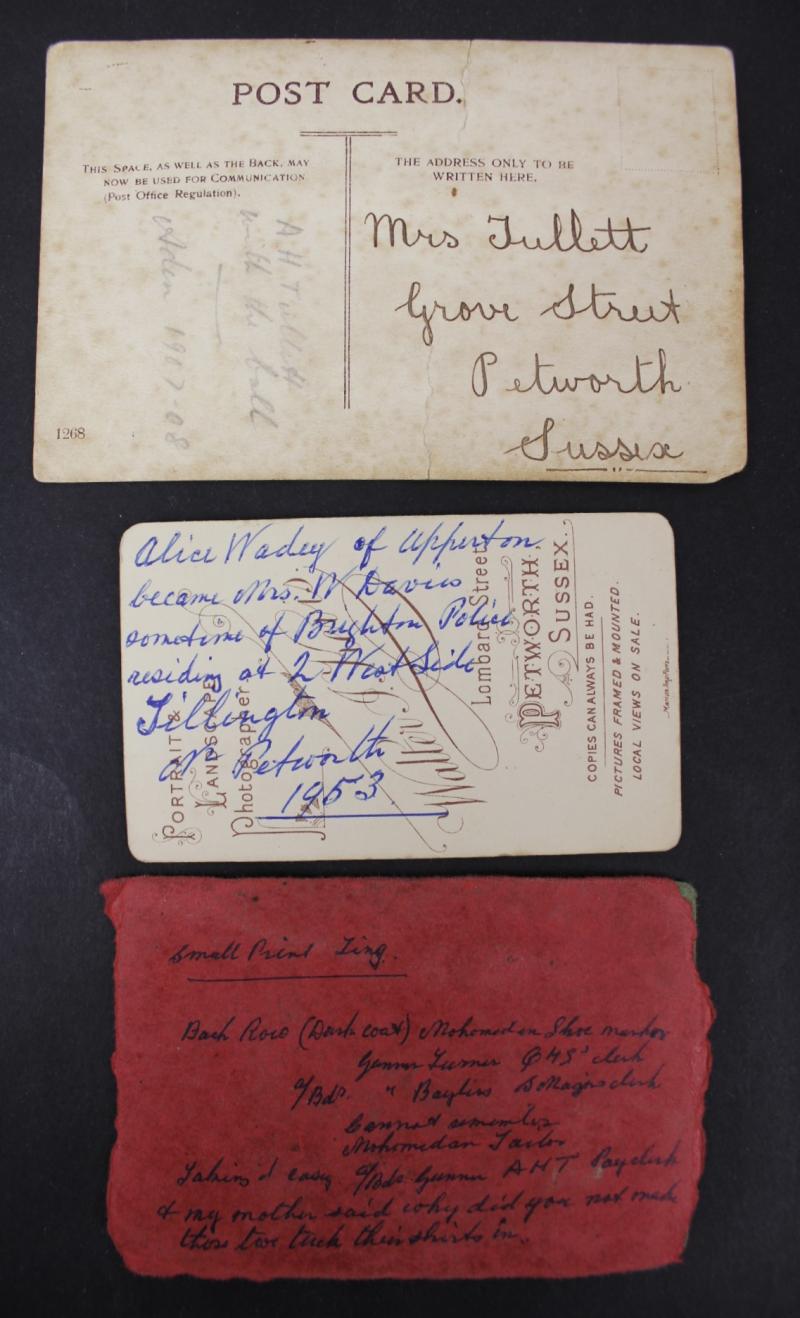 POST CARD.
THIS SPACE, AS WELL AS THE BACK, MAY
NOW BE USED FOR COMMUNICATION
(Post Office Regulation).
THE ADDRESS ONLY TO BE
WRITTEN HERE.
A H Tullett
with the ball
Aden 1907-08
Mrs Tullett
Grove Street
Petworth
Sussex
1268
Alice Wadey of Upperton
became Mrs. W Davies
sometime of Brighton Police
residing at 2 West Side
Tillington
Nr Petworth
1953
PORTRAIT &
LANDSCAPE
Photographer
Walter
Lombard Street,
PETWORTH,
SUSSEX.
COPIES CAN ALWAYS BE HAD.
PICTURES FRAMED & MOUNTED.
LOCAL VIEWS ON SALE.
Small Print
Back Row (Dark coat) Mohomedan Shoe maker
Gunner Turner QMS' clerk
a/Bdr. " Bayliss S Majors clerk
Cannot remember
Mohomedan Tailor
Taking it easy a/Bdr Gunner A H T Pay clerk
& my mother said why did you not make
those two tuck their shirts in.